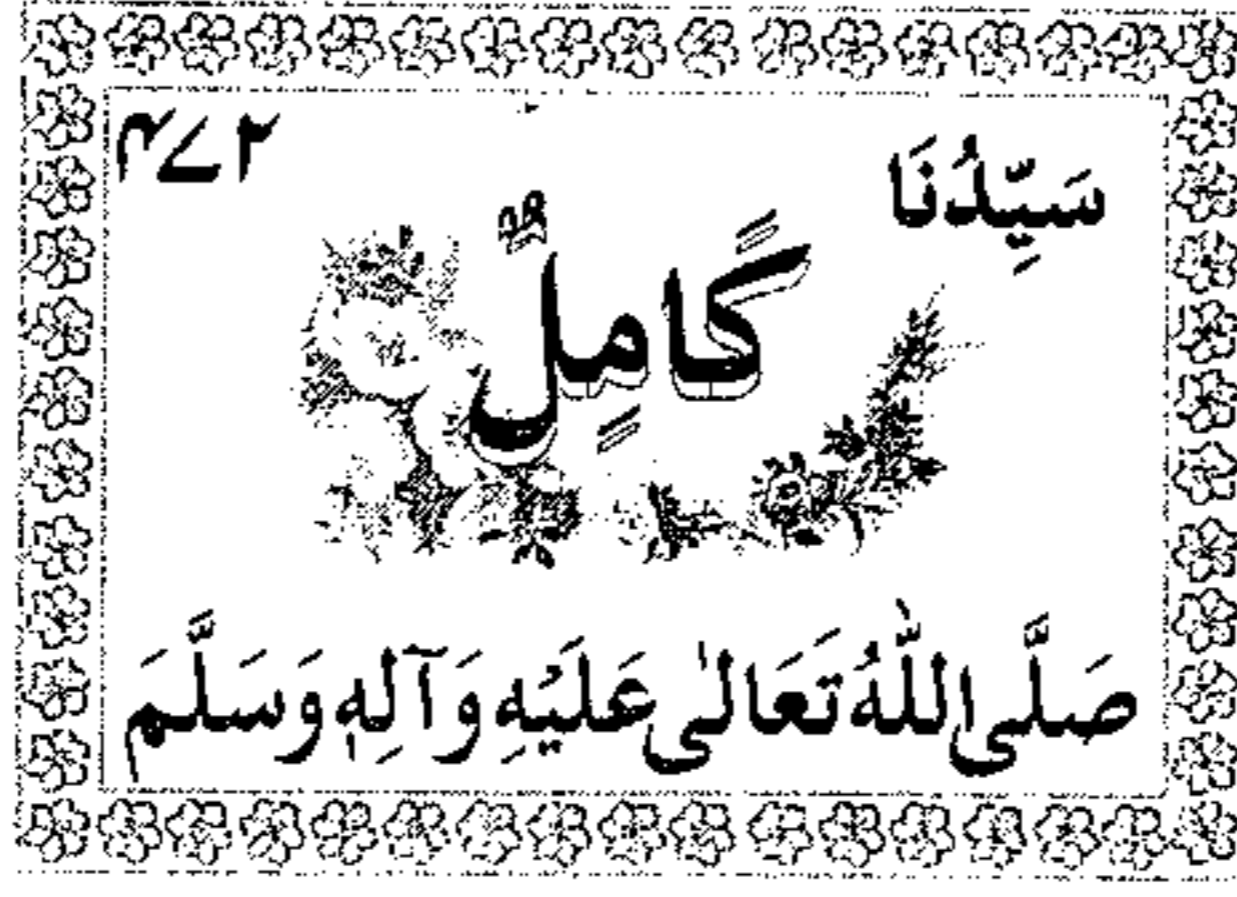 سَيِّدُنَا
۴۷۲
كَامِلٌ
صَلَّى اللّٰهُ تَعَالٰى عَلَيْهِ وَآلِهٖ وَسَلَّمَ